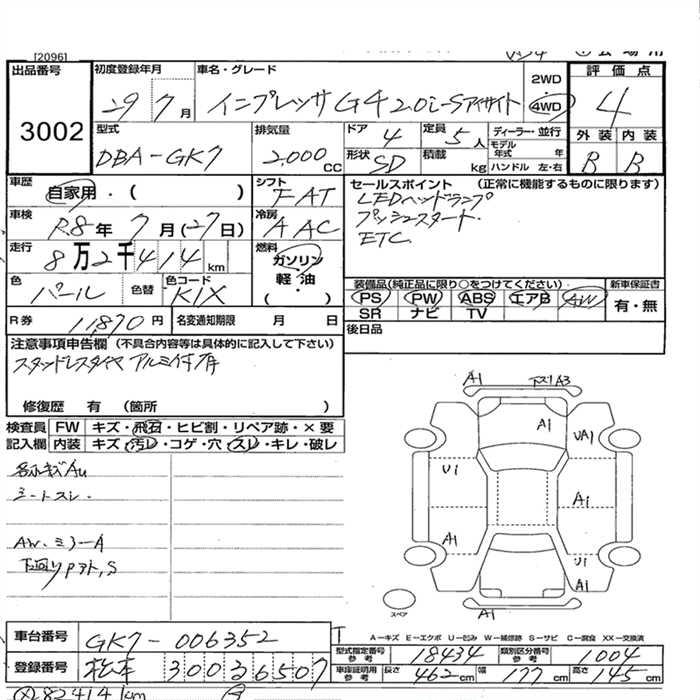 [2096]
出品番号 3002
初度登録年月 29 7月
車名・グレード インプレッサG4 2.0i-Sアイサイト
2WD
4WD
評価点 4
外装 内装
B B
型式 DBA-GK7
排気量 2,000 CC
ドア 4
定員 5人
形状 SD
積載 kg
ディーラー・並行
モデル年式 年
ハンドル 左・右
車歴 自家用・( )
シフト FAT
車検 R8年 7月(27日)
冷房 AAC
走行 8万2千414km
燃料 ガソリン
軽油
・( )
色 パール 色替
色コード K1X
R券 11,870円
名変通知期限 月 日
セールスポイント (正常に機能するものに限ります)
LEDヘッドランプ
プッシュスタート.
ETC
装備品(純正品に限り○をつけてください)
PS PW ABS エアB AW
SR ナビ TV
新車保証書
有・無
後日品
注意事項申告欄 (不具合等は具体的に記入して下さい)
スタッドレスタイヤ アルミ付有
修復歴 有 (箇所 )
検査員 FW キズ・飛石・ヒビ割・リペア跡・×要
記入欄 内装 キズ・汚レ・コゲ・穴・スレ・キレ・破レ
シートスレ.
AW.ミラーA
A1 A3
A1
U1 UA1
A1
A1
U1
A1
A1
スペア
A−キズ E−エクボ U−凹み W−補修跡 S−サビ C−腐食 XX−交換済
車台番号 GK7-006352
登録番号 松本 300 3 6507
型式指定番号 参考 18434
類別区分番号 参考 1004
車庫証明用 参考 長さ 462cm 幅 177cm 高さ 145cm
82414km